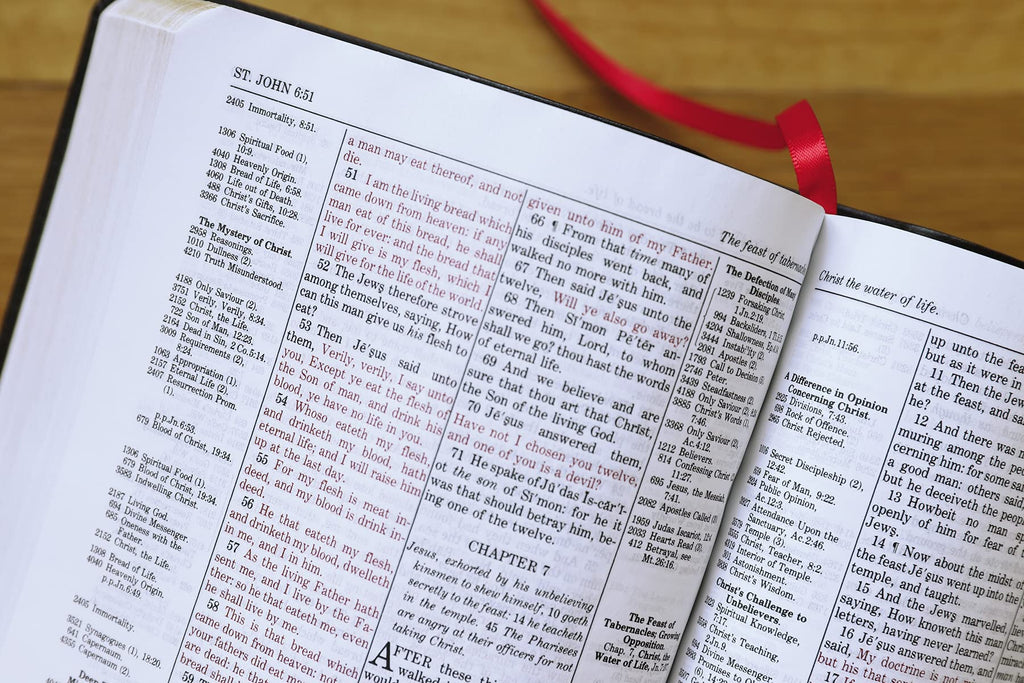 ST. JOHN 6:51
2405 Immortality, 8:51.
1306 Spiritual Food (1),
10:9.
4040 Heavenly Origin.
1308 Bread of Life, 6:58.
4060 Life out of Death.
488 Christ's Gifts, 10:28.
3366 Christ's Sacrifice.
The Mystery of Christ.
2958 Reasonings.
1010 Dullness (2).
4210 Truth Misunderstood.
4188 Only Saviour (2).
3751 Verily, Verily, 8:34.
2152 Christ, the Life.
722 Son of Man, 12:23.
2164 Dead in Sin, 2 Co.5:14.
3009 Requirements (2),
8:24.
1063 Appropriation (1).
2157 Eternal Life (2).
2407 Resurrection Prom.
(1).
p.p.Jn.6:53.
679 Blood of Christ, 19:34.
1306 Spiritual Food (1).
679 Blood of Christ, 19:34.
3583 Indwelling Christ.
2187 Living God.
694 Divine Messenger.
685 Oneness with the
Father.
2152 Christ, the Life.
1308 Bread of Life.
4040 Heavenly Origin.
p.p.Jn.6:49.
2405 Immortality.
3521 Synagogues (1), 18:20.
641 Capernaum (2).
Capernaum (2).
a man may eat thereof, and not
die.
51 I am the living bread which
came down from heaven: if any
man eat of this bread, he shall
live for ever: and the bread that
I will give is my flesh, which I
will give for the life of the world.
52 The Jews therefore strove
among themselves, saying, How
can this man give us his flesh to
eat?
53 Then Jē'şus said unto
them, Verily, verily, I say unto
you, Except ye eat the flesh of
the Son of man, and drink his
blood, ye have no life in you.
54 Whoso eateth my flesh,
and drinketh my blood, hath
eternal life; and I will raise him
up at the last day.
55 For my flesh is meat in-
deed, and my blood is drink in-
deed.
56 He that eateth my flesh,
and drinketh my blood, dwelleth
in me, and I in him.
57 As the living Father hath
sent me, and I live by the Fa-
ther: so he that eateth me, even
he shall live by me.
58 This is that bread which
came down from heaven: not as
your fathers did eat
are dead: he
bread shall
59
given unto him of my Father.
66 ¶ From that time many of
his disciples went back, and
walked no more with him.
67 Then said Jē'şus unto the
twelve, Will ye also go away?
68 Then Sī'mon Pē'tēr an-
swered him, Lord, to whom
shall we go? thou hast the words
of eternal life.
69 And we believe and are
sure that thou art that Christ,
the Son of the living God.
70 Jē'şus answered them,
Have not I chosen you twelve,
and one of you is a devil?
71 He spake of Jū'das Is-car'ĭ-
ot the son of Sī'mon: for he it
was that should betray him, be-
ing one of the twelve.
CHAPTER 7
Jesus, exhorted by his unbelieving
kinsmen to shew himself, 10 goeth
secretly to the feast. 14 he teacheth
in the temple. 45 The Pharisees
are angry at their officers for not
taking Christ.
AFTER these
walked
The feast of
The Defection of Many
Disciples.
1239 Forsaking Christ,
1 Jn.2:19.
994 Backsliders,
4204 Shallowness,
3444 Instab'ity (2).
2081 Apostles (2).
1790 Call to Decision
2746 Peter.
3439 Steadfastness (2).
4188 Only Saviour (2),
3885 Christ's Words (1),
7:46.
3368 Only Saviour (2),
Ac.4:12.
1212 Believers.
814 Confessing Christ,
11:27.
695 Jesus, the Messiah,
7:41.
2082 Apostles Called
1959 Judas Iscariot,
2033 Hearts Read (3).
412 Betrayal, see
Mt. 26:16.
The Feast of
Tabernacles; Growing
Opposition.
Chap. 7, Christ, the
Water of Life,
Christ the water of life.
p.p.Jn.11:56.
A Difference in Opinion
Concerning Christ.
Divisions, 7:43.
Rock of Offence.
Christ Rejected.
Secret Discipleship (2),
12:42.
Fear of Man, 9:22.
Public Opinion,
Ac.12:3.
Attendance Upon the
Sanctuary, Ac.2:46.
Temple (3).
Christ, Teacher, 8:2.
Interior of Temple.
Astonishment.
Christ's Wisdom.
Christ's Challenge to
Unbelievers.
Spiritual Knowledge,
7:17.
Christ's Teaching,
2Jn.9.
Divine Messenger.
Promises to
up unto the
but as it were in
11 Then the Jews
at the feast, and
he?
12 And there was
muring among the
cerning him: for some
a good man: others said
but he deceiveth the people
13 Howbeit no man
openly of him for fear of
Jews.
14 ¶ Now about the midst of
the feast Jē'şus went up into
temple, and taught.
15 And the Jews marvelled,
saying, How knoweth this man
letters, having never learned?
16 Jē'şus answered them, and
My doctrine is not
but his that
17